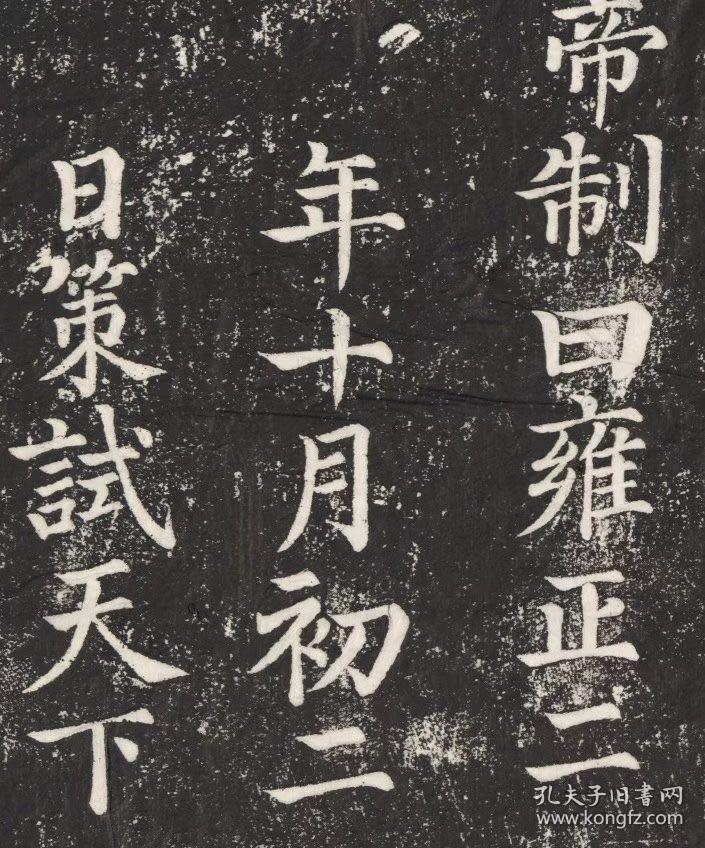 帝制曰雍正二
年十月初二
日策試天下
孔夫子旧書网
www.kongfz.com